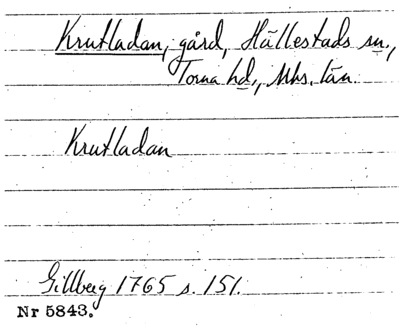 Krutladan, gård, Hällestads sn.,
Torna hd., Mhs. län.
Krutladan
Gillberg 1765 s. 151.
Nr 5843.